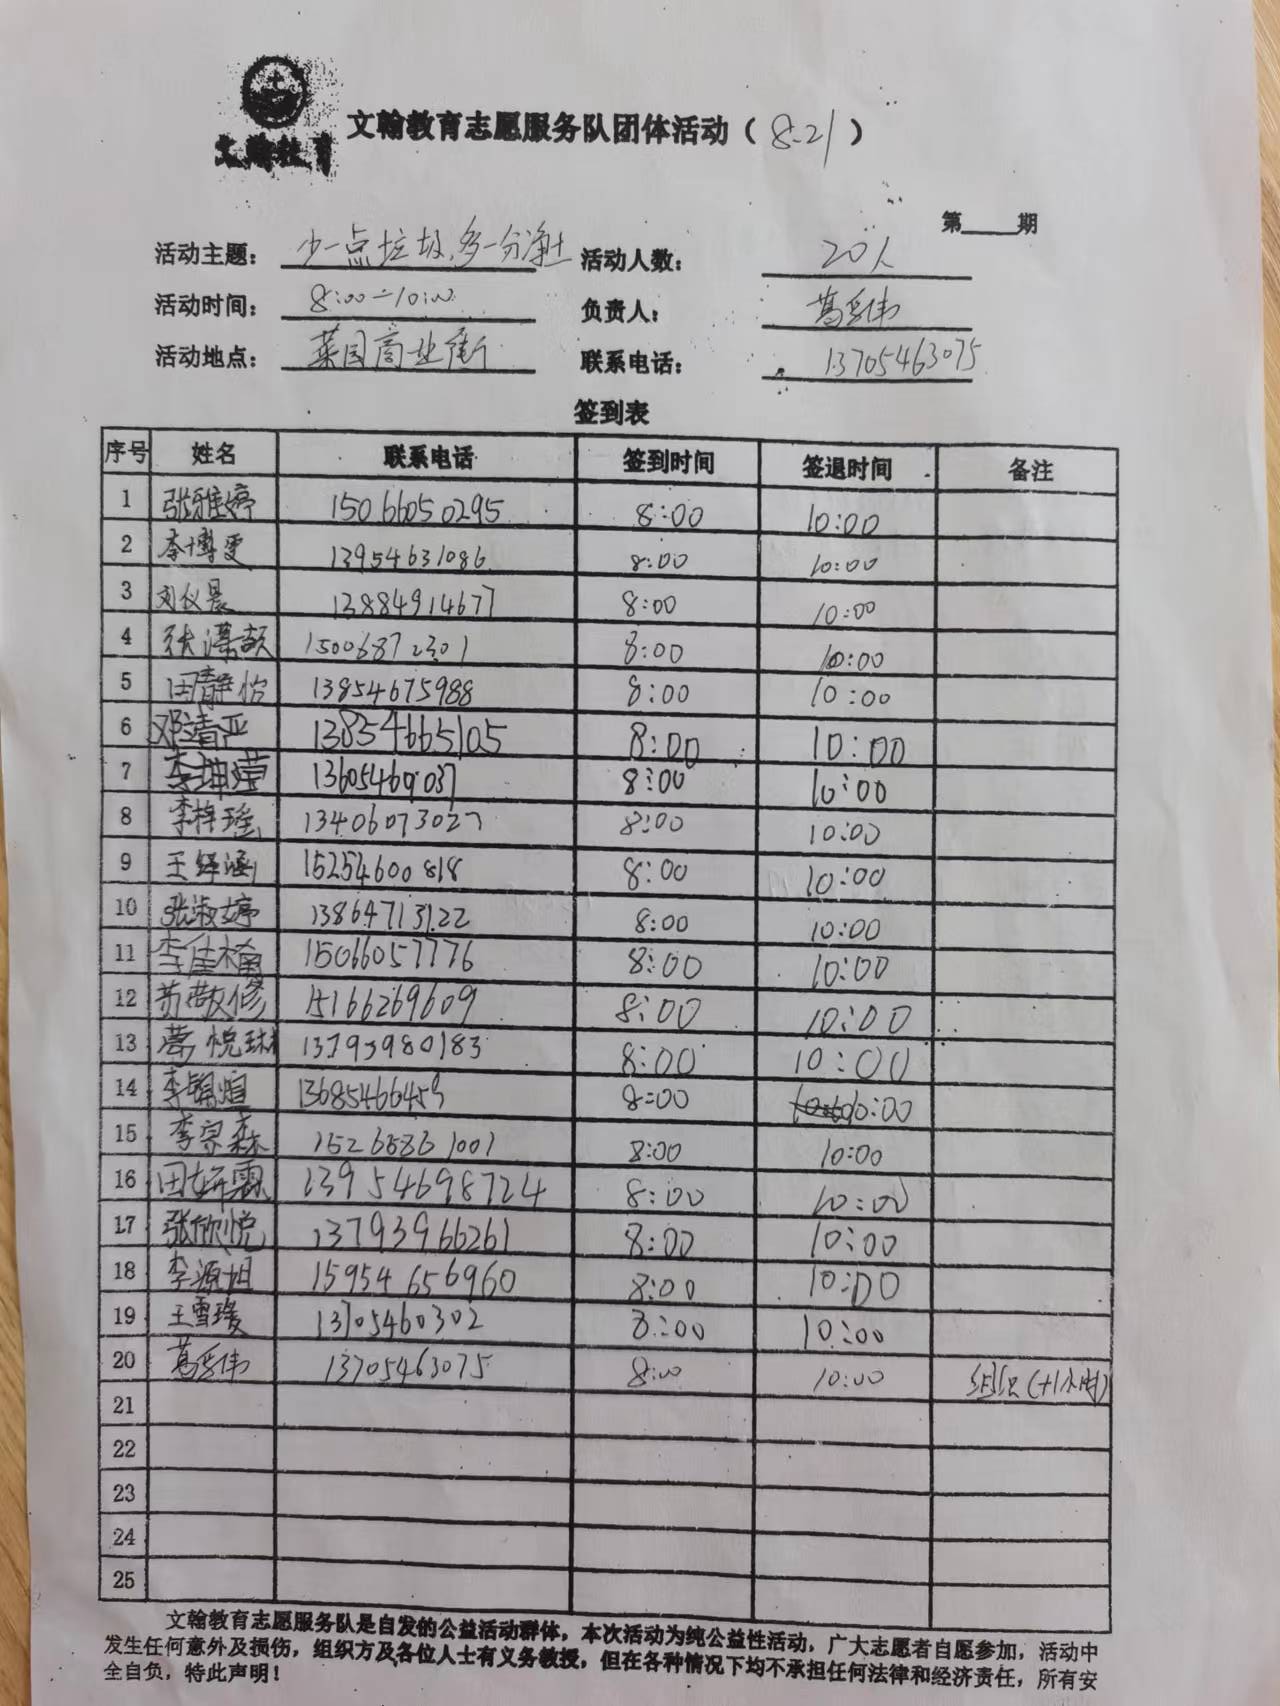 文翰教育
文翰教育志愿服务队团体活动（8.21）
第____期
活动主题：少一点垃圾,多一分净土 活动人数：20人
活动时间：8:00-10:00 负责人：
活动地点：菜园商业街 联系电话：13705463075
签到表
序号 姓名 联系电话 签到时间 签退时间 备注
1 张雅婷 15066050295 8:00 10:00
2 李博雯 13954631086 8:00 10:00
3 刘仪晨 13884914677 8:00 10:00
4 张潇颉 15006872301 8:00 10:00
5 田静怡 13854675988 8:00 10:00
6 邓清严 13854665105 8:00 10:00
7 李坤莹 13605460037 8:00 10:00
8 李梓瑶 13406073027 8:00 10:00
9 王绎涵 15254600818 8:00 10:00
10 张淑婷 13864713122 8:00 10:00
11 李佳楠 15066057776 8:00 10:00
12 苏敬修 15166269609 8:00 10:00
13 悦琳 13793980183 8:00 10:00
14 李锦煊 13685466459 8:00 10:00
15 李宗森 15265861001 8:00 10:00
16 田妍霏 13954698724 8:00 10:00
17 张欣悦 13793966261 8:00 10:00
18 李源坦 15954656960 8:00 10:00
19 王雪瑗 13705460302 8:00 10:00
20 13705463075 8:00 10:00 组织(+1小时)
21
22
23
24
25
文翰教育志愿服务队是自发的公益活动群体，本次活动为纯公益性活动，广大志愿者自愿参加，活动中
发生任何意外及损伤，组织方及各位人士有义务教授，但在各种情况下均不承担任何法律和经济责任，所有安
全自负，特此声明！